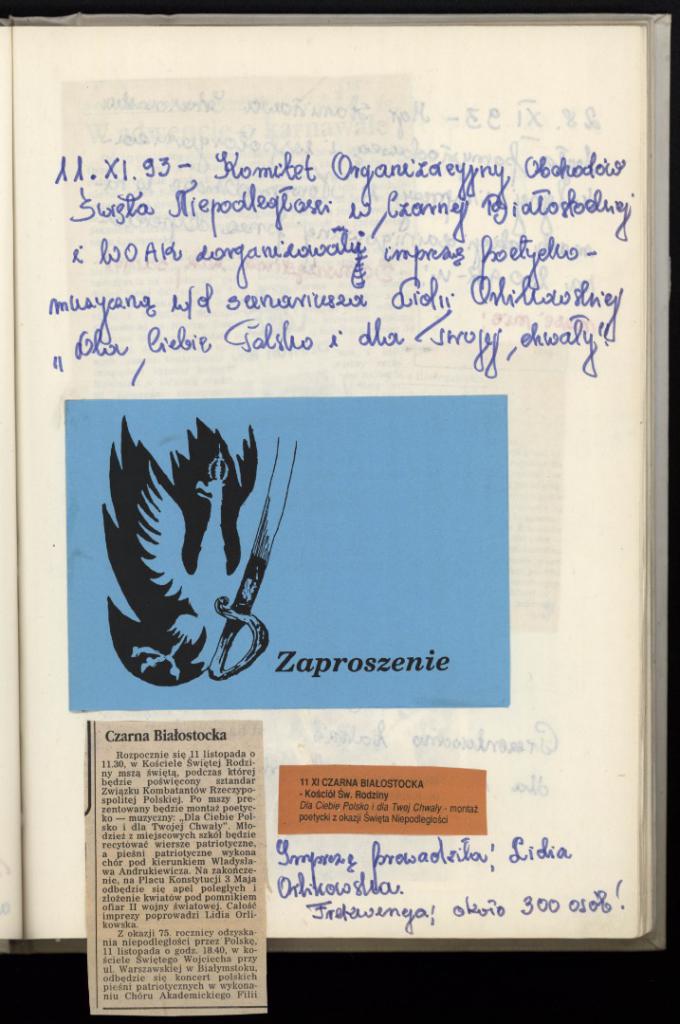 11.XI.93 - Komitet Organizacyjny Obchodów
Święta Niepodległości w Czarnej Białostockiej
i WOAK zorganizowały imprezę poetycko-
muzyczną w/d scenariusza Lidii Orlikowskiej
"Dla Ciebie Polsko i dla Twojej chwały".
Zaproszenie
Czarna Białostocka
Rozpocznie się 11 listopada o
11.30, w Kościele Świętej Rodzi-
ny mszą świętą, podczas której
będzie poświęcony sztandar
Związku Kombatantów Rzeczypo-
spolitej Polskiej. Po mszy pre-
zentowany będzie montaż poetyc-
ko — muzyczny: „Dla Ciebie Pol-
sko i dla Twojej Chwały". Mło-
dzież z miejscowych szkół będzie
recytować wiersze patriotyczne,
a pieśni patriotyczne wykona
chór pod kierunkiem Władysła-
wa Andrukiewicza. Na zakończe-
nie, na Placu Konstytucji 3 Maja
odbędzie się apel poległych i
złożenie kwiatów pod pomnikiem
ofiar II wojny światowej. Całość
imprezy poprowadzi Lidia Orli-
kowska.
Z okazji 75. rocznicy odzyska-
nia niepodległości przez Polskę,
11 listopada o godz. 18.40, w ko-
ściele Świętego Wojciecha przy
ul. Warszawskiej w Białymstoku,
odbędzie się koncert polskich
pieśni patriotycznych w wykona-
niu Chóru Akademickiego Filii
11 XI CZARNA BIAŁOSTOCKA
- Kościół Św. Rodziny
Dla Ciebie Polsko i dla Twej Chwały - montaż
poetycki z okazji Święta Niepodległości
Imprezę prowadziła: Lidia
Orlikowska.
Frekwencja: około 300 osób!